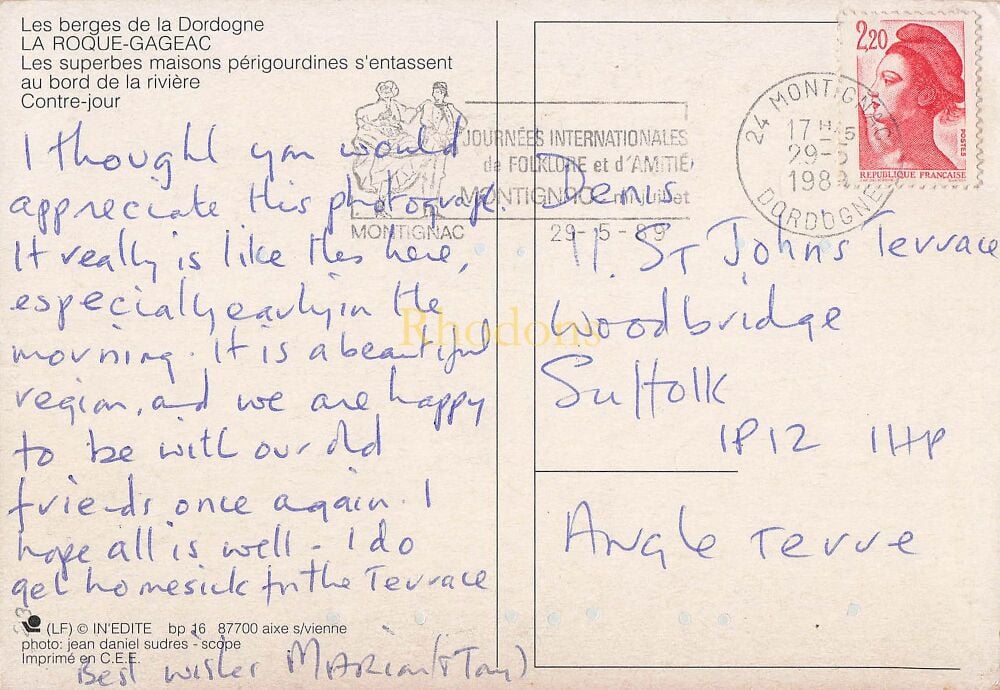 Les berges de la Dordogne
LA ROQUE-GAGEAC
Les superbes maisons périgourdines s'entassent
au bord de la rivière
Contre-jour
I thought you would
appreciate this photograph.
It really is like this here,
especially early in the
morning. It is a beautiful
region, and we are happy
to be with our old
friends once again. I
hope all is well - I do
get homesick for the Terrace
Best wishes Marian (& Tony)
(LF) © IN'EDITE bp 16 87700 aixe s/vienne
photo: jean daniel sudres - scope
Imprimé en C.E.E.
MONTIGNAC
JOURNÉES INTERNATIONALES
de FOLKLORE et d'AMITIÉ
MONTIGNAC juillet
29-5-89
24 MONTIGNAC
17 H
29-5
1989
DORDOGNE
2,20
POSTES
REPUBLIQUE FRANÇAISE
Denis
11. St Johns Terrace
Woodbridge
Suffolk
IP12 1HP
Angleterre
Rhodons